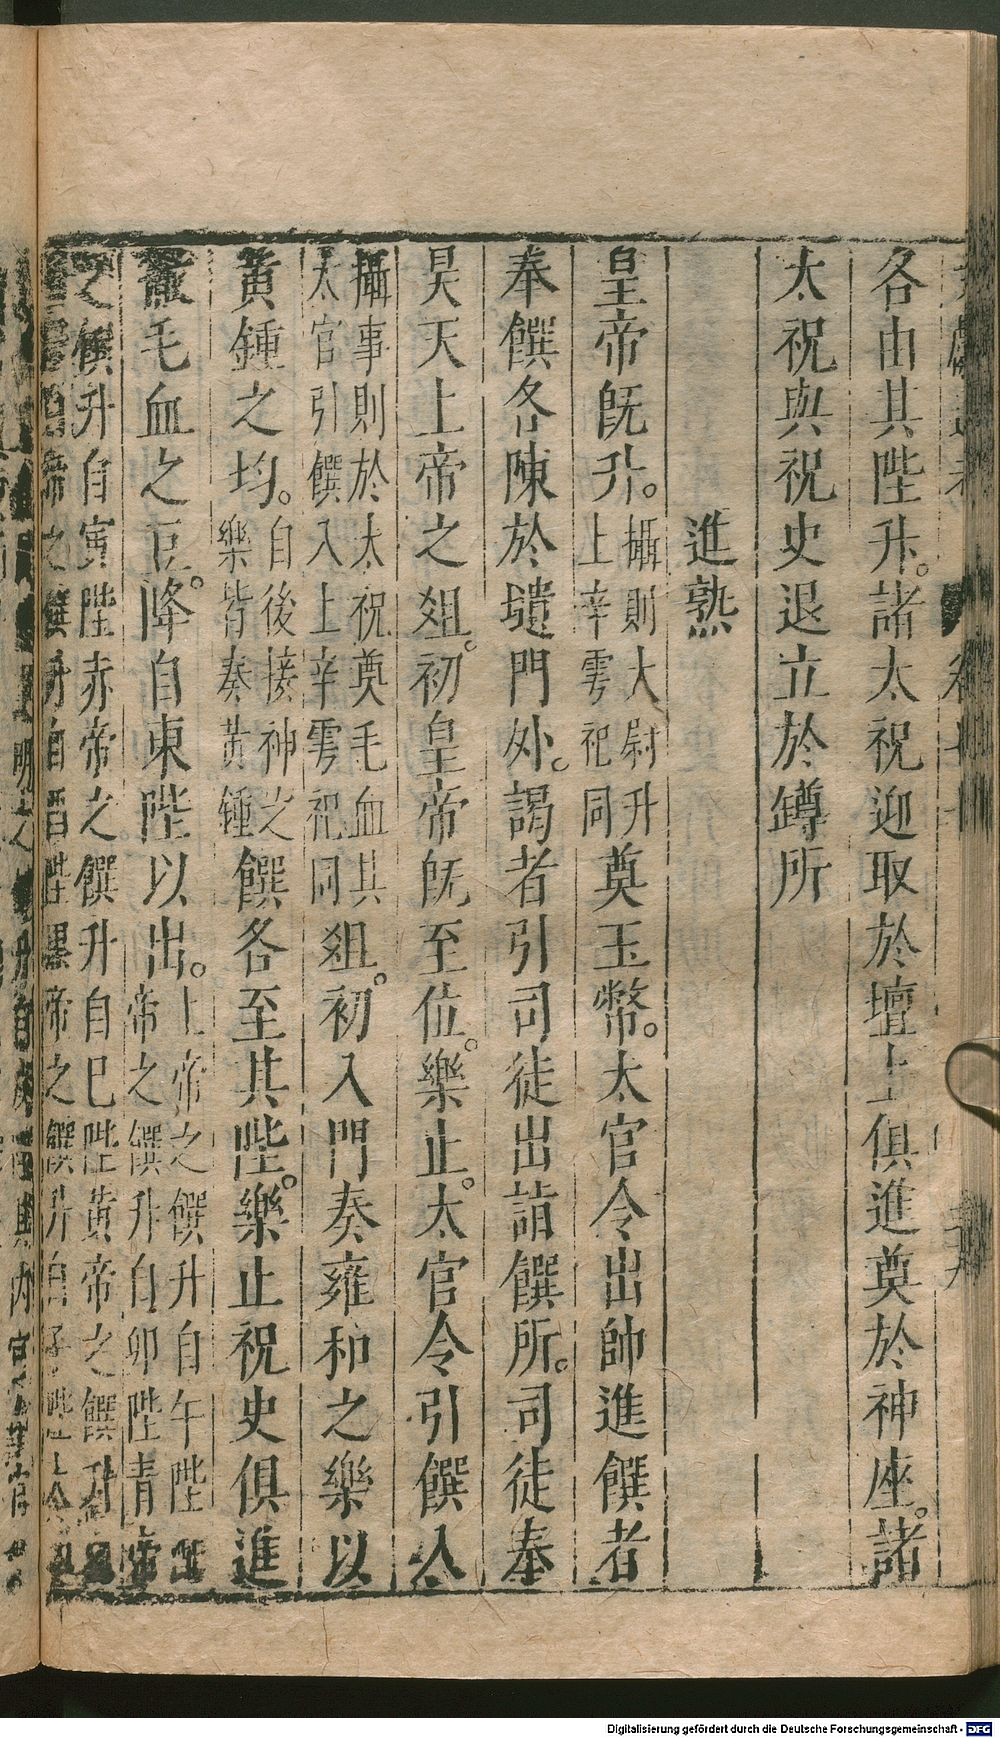 各由其陛升。諸太祝迎取於壇上俱進奠於神座。諸
太祝與祝史退立於罇所
進熟
皇帝旣升。攝則大尉升上辛雩祀同奠玉幣。太官令出帥進饌者
奉饌各陳於壝門外。謁者引司徒出詣饌所。司徒奉
昊天上帝之俎。初皇帝旣至位。樂止。太官令引饌入
攝事則於太祝奠毛血其太官引饌入上辛雩祀同俎。初入門奏雍和之樂以
黃鍾之均。自後接神之樂皆奏黃鍾饌各至其陛。樂止祝史俱進
毛血之豆。降自東陛以出。上帝之饌升自午陛帝之饌升自卯陛青
饌升自寅陛赤帝之饌升自巳陛黃帝之饌升
帝之饌升自酉陛黑帝之饌升自子陛
Digitalisierung gefördert durch die Deutsche Forschungsgemeinschaft - DFG